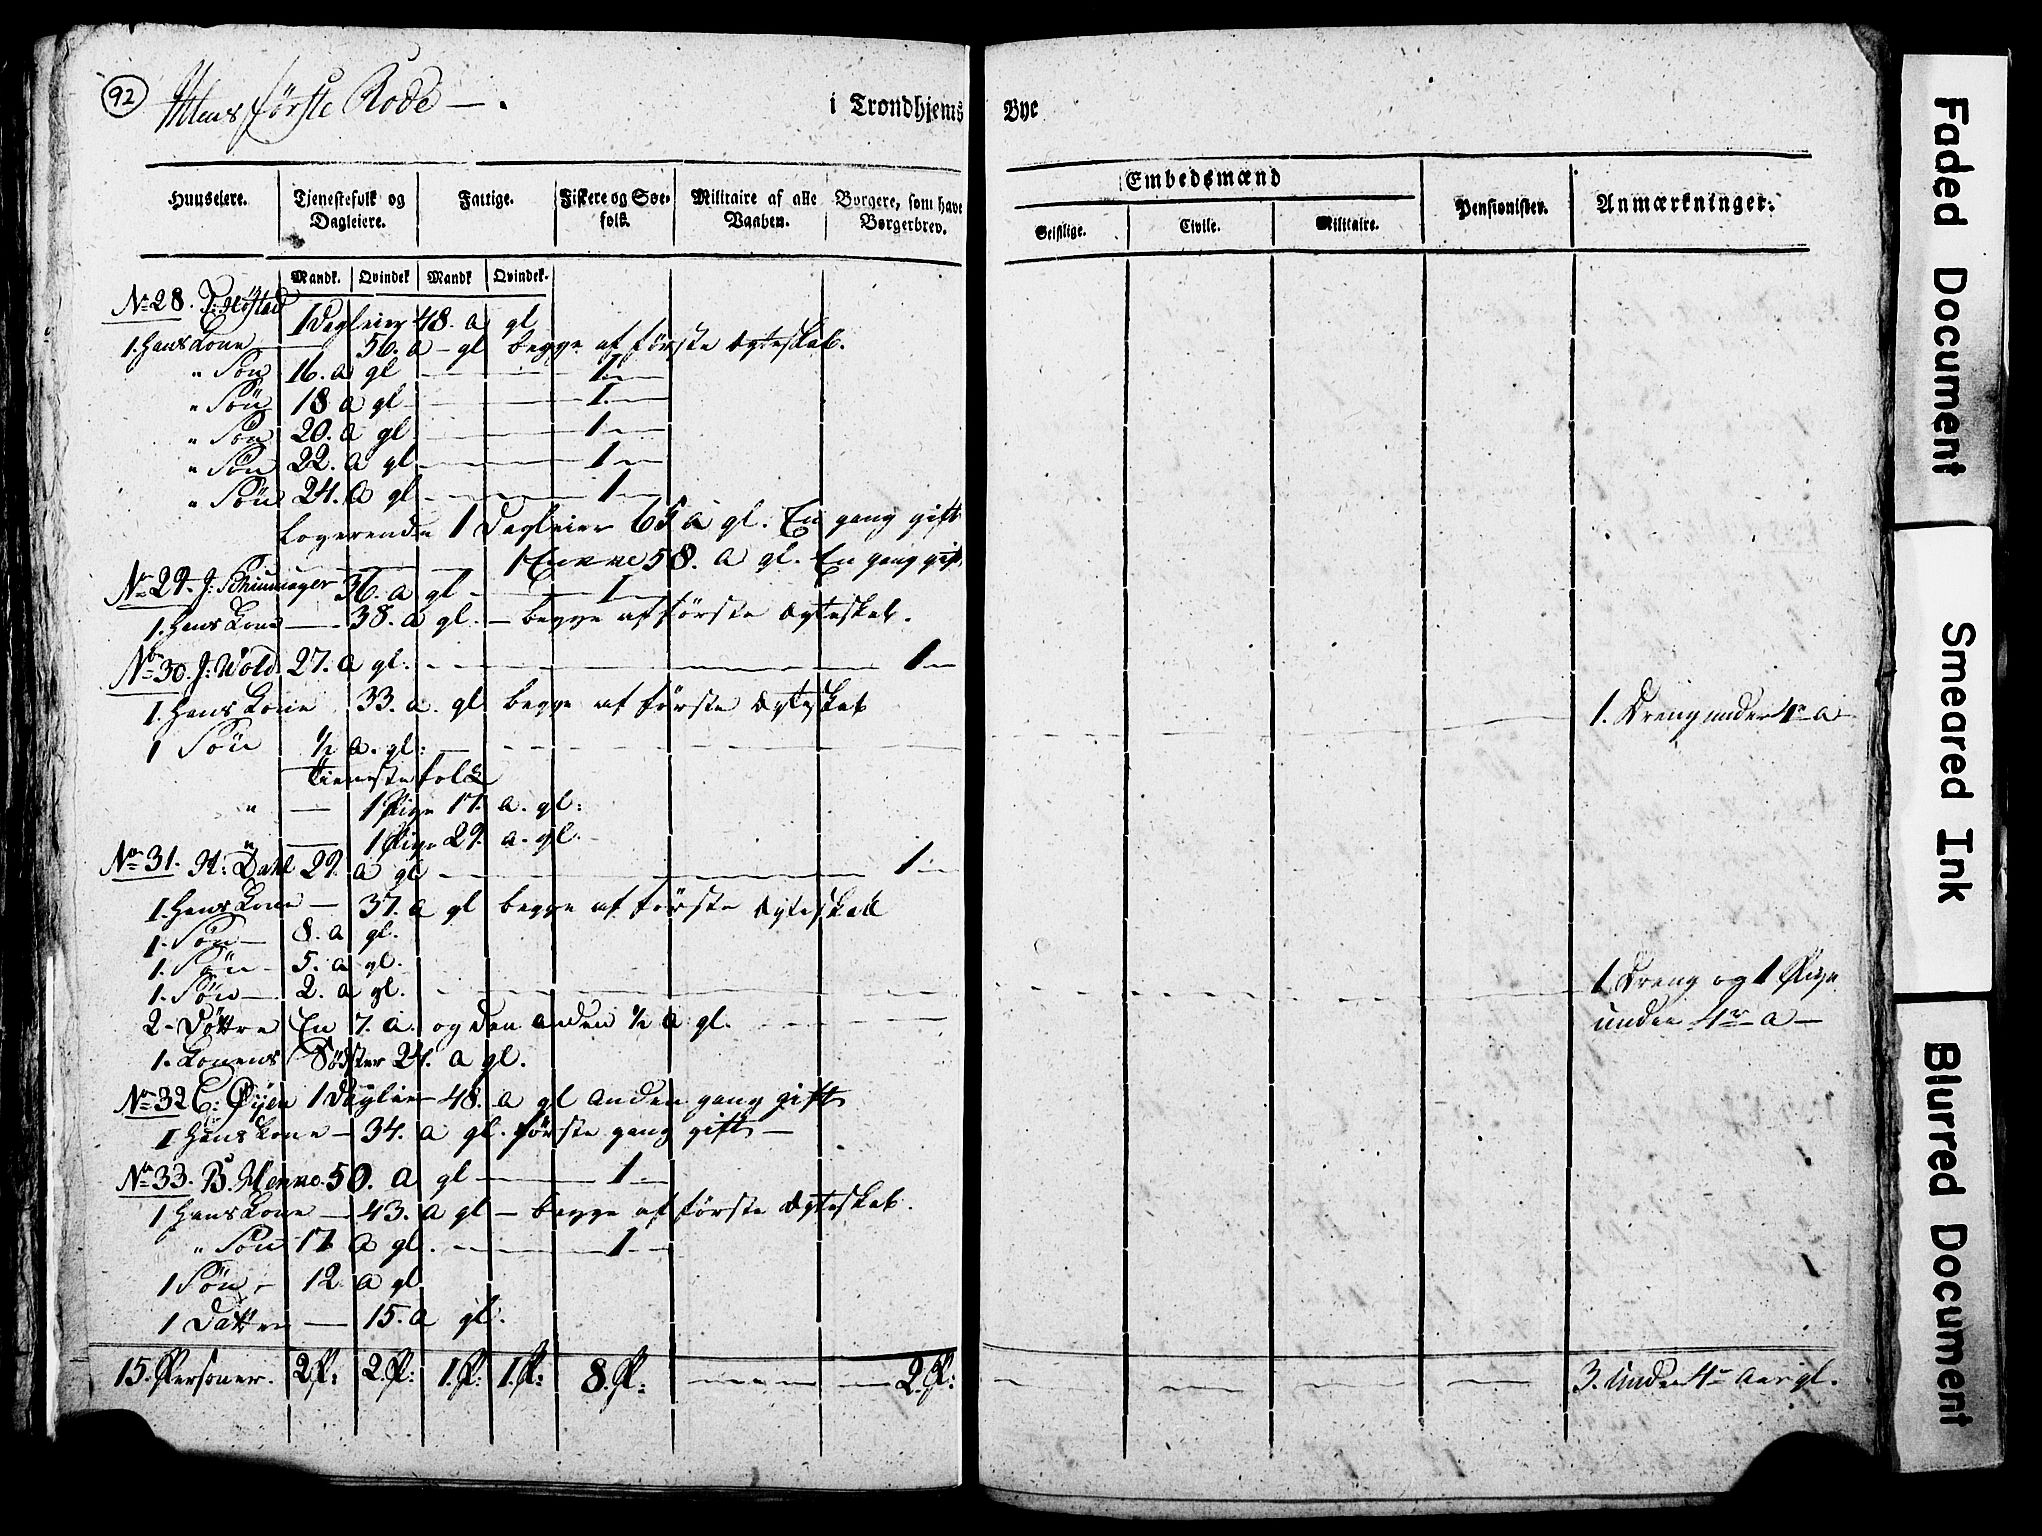 92
Ihlens første Rode —.
i Trondhjems Bye
Huuseiere. Tjenestefolk og Dagleiere. Fattige. Fiskere og Søefolk. Militaire af alle Vaaben. Borgere, som have Borgerbrev. Embedsmænd Pensionister. Anmærkninger.
Geistlige. Civile. Militaire.
Mandk. Qvindek Mandk Qvindek.
No 28. 1 Dagleier 48. a gl
1. Hans Kone — 56. a — gl begge af første Egteskab.
" Søn 16. a gl — 1. —
" Søn 18 a gl — 1. —
" Søn 20. a gl. — 1 —
" Søn 22. a gl — 1 —
" Søn 24. a gl — 1 —
Logerende 1 Dagleier 65 a gl. En gang gift
1 Enke 58. a gl. En gang gift
No 29. J: 36. a gl — 1 —
1. Hans Kone — 38. a gl. — begge af første Egteskab.
No 30. J: Wold. 27. a gl. — 1 —
1. Hans Kone 33. a. gl begge af første Egteskab
1 Søn ½ a. gl: — 1. Dreng under 4re a
Tienestefolk
" — 1 Pige 17. a. gl:
" — 1 Pige 29. a. gl.
No 31. H: Dahl 29. a gl — 1 —
1. Hans Kone — 37. a gl begge af første Egteskab
1. Søn — 8. a gl.
1. Søn — 5. a gl.
1. Søn — 2. a gl. — 1 Dreng og 1 Pige
2 - Døttre En 7. a. og den anden ½ a gl. — under 4re a —
1. Konens Søster 24. a gl.
No 32 C: Øyen 1 Dagleier 48. a gl anden gang gift
1 Hans Kone — 34. a gl. første gang gift —
No 33. B. 50. a gl — 1 —
1 Hans Kone — 43. a gl — begge af første Egteskab.
" Søn 17 a gl. — 1 —
1 Søn — 12. a gl
1 Datter — 15. a gl.
15. Personer. 2 P: 2. P: 1. P: 1. P: 8. P: — 2. P: — 3. under 4re Aar gl.
Faded Document
Smeared Ink
Blurred Document